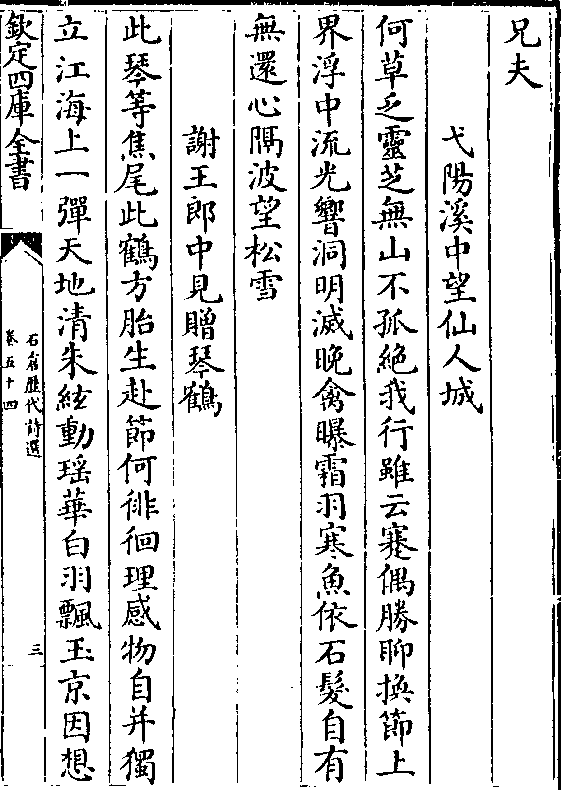 兄夫
弋陽溪中望仙人城
何草乏靈芝無山不孤絶我行雖云蹇偶勝聊換節上
界浮中流光響洞明滅晚禽曝霜羽寒魚依石髮自有
無還心隔波望松雪
謝王郎中見贈琴鶴
此琴等焦尾此鶴方胎生赴節何徘徊理感物自并獨
立江海上一彈天地清朱絃動瑶華白羽飄玉京因想
欽定四庫全書
石倉歷代詩選
卷五十四
三